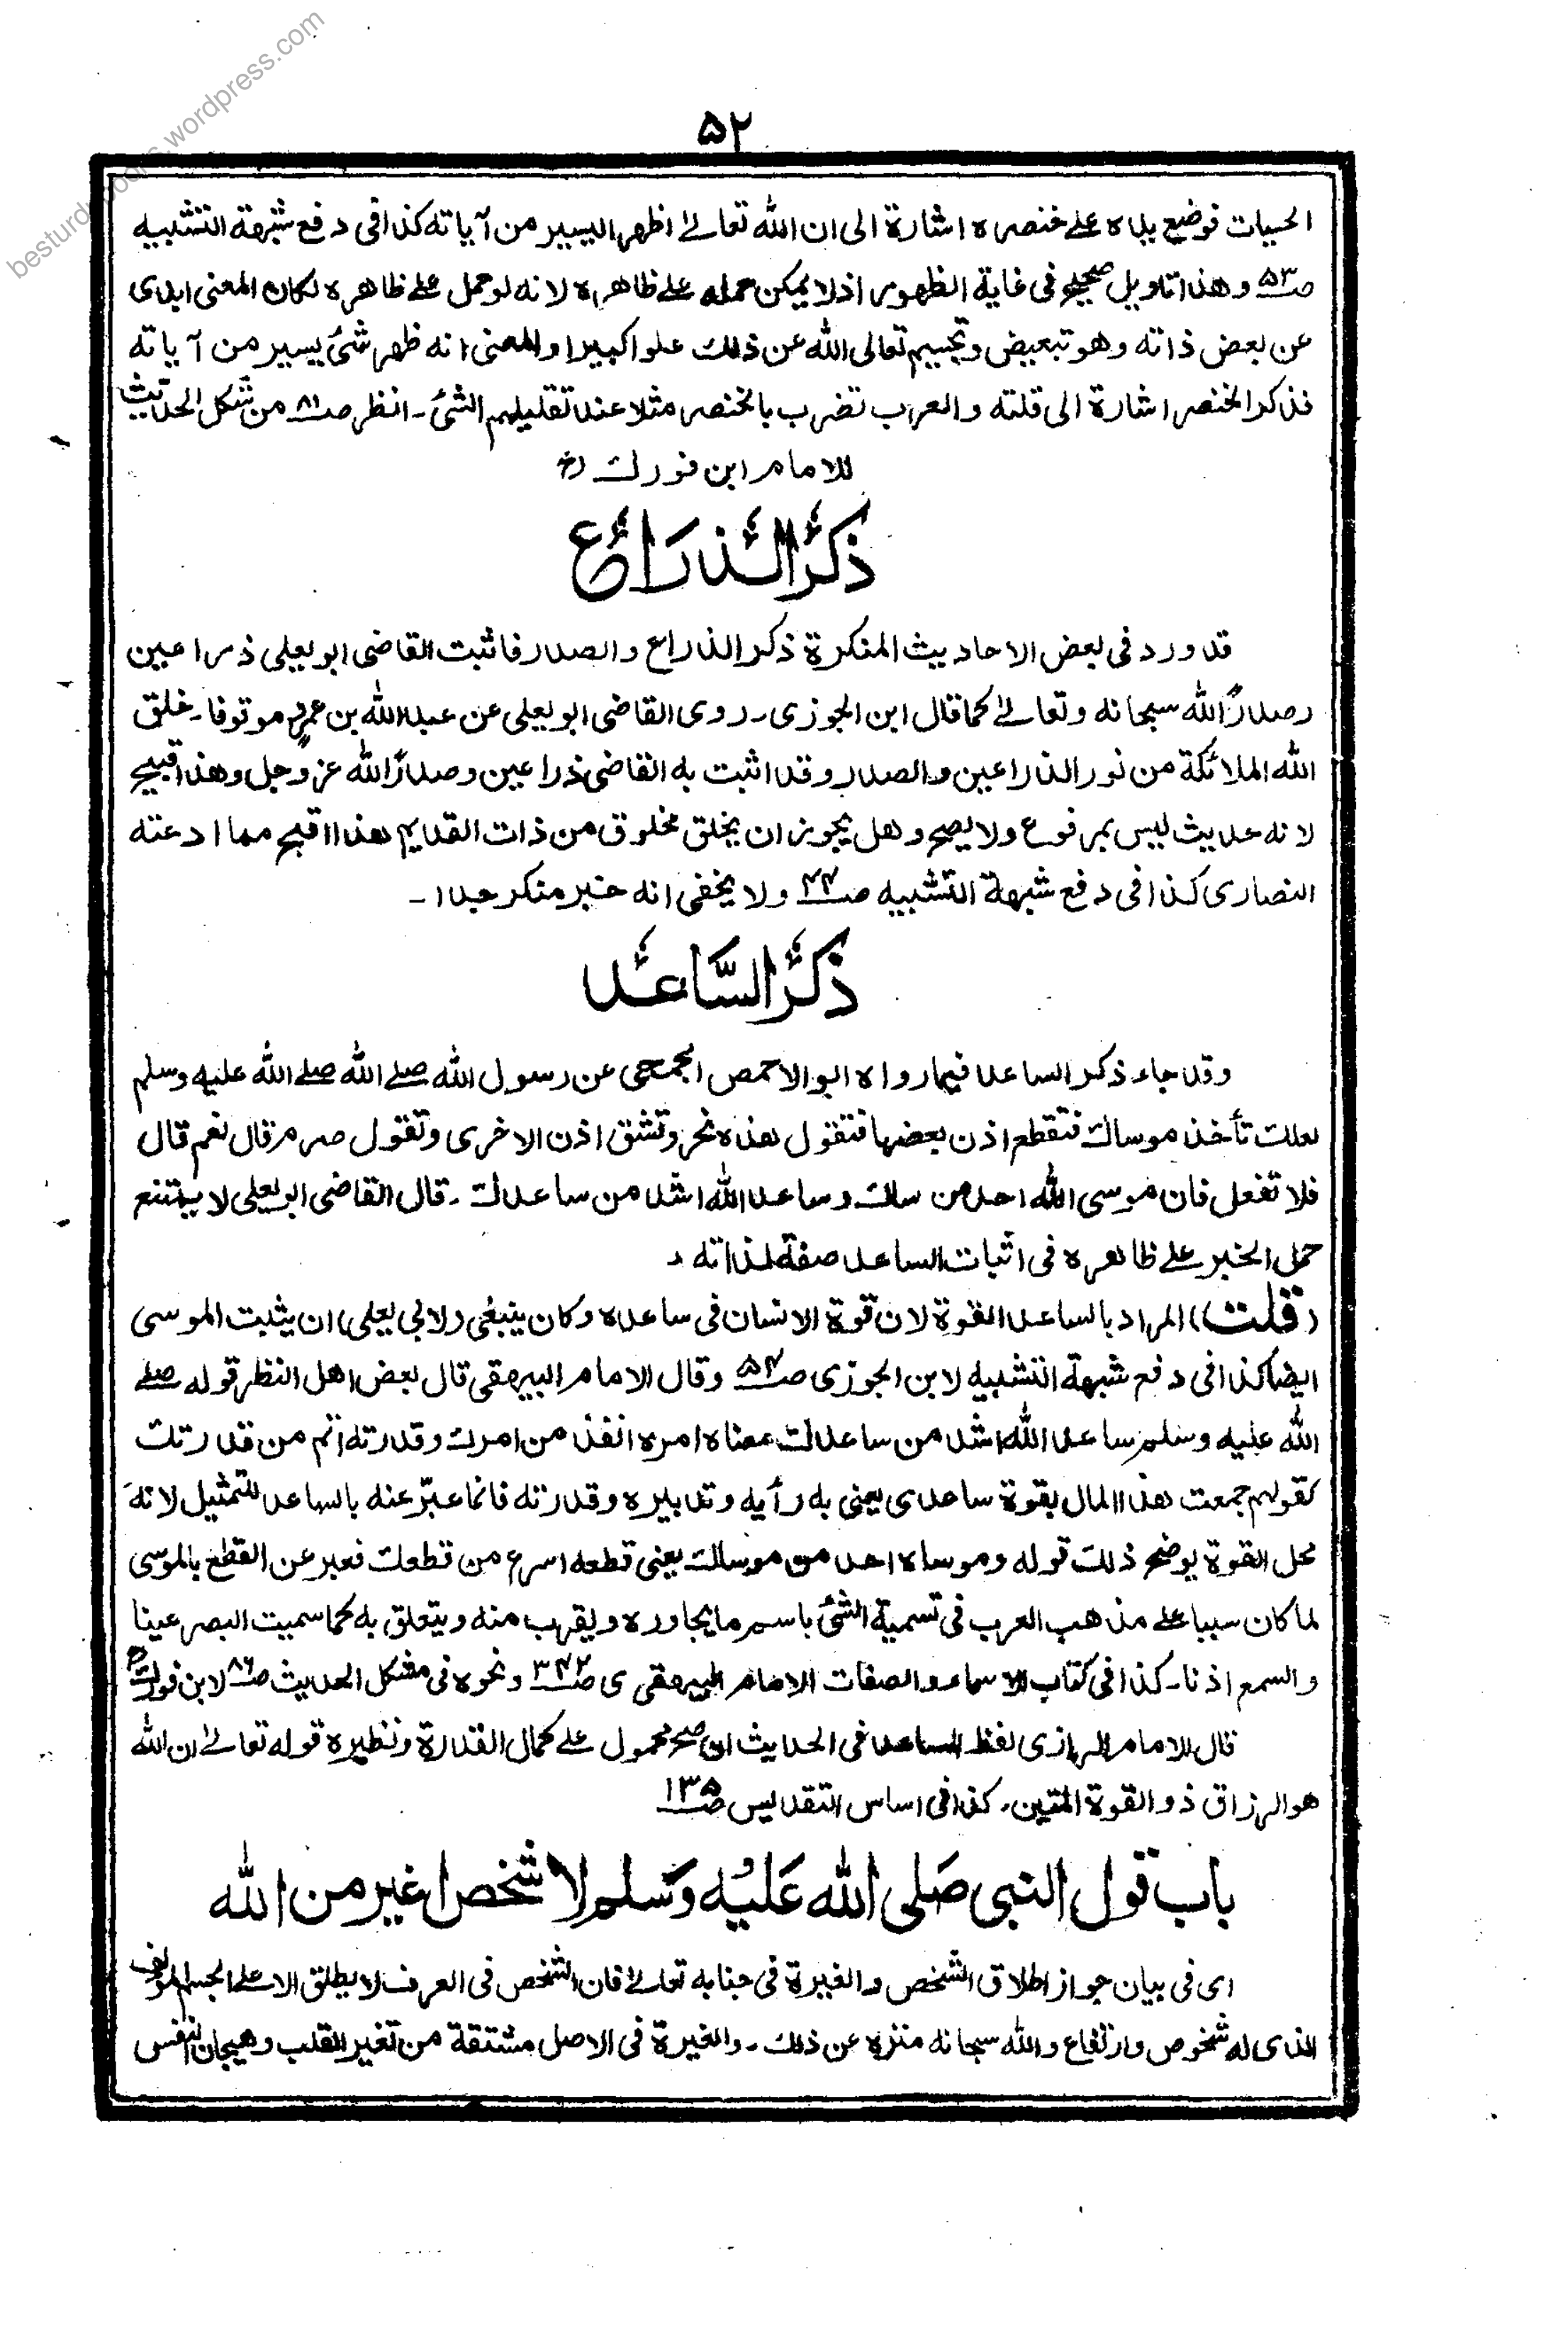 besturdubooks.wordpress.com
۵۲
الحسيات فوضع يده على خنصره اشارة الى ان الله تعالى اظهر اليسير من آياته كذا فى دفع شبهة التشبيه
صـ۵۳ وهذا تاويل صحيح فى غاية الظهور اذ لا يمكن حمله على ظاهره لانه لو حمل على ظاهره لكان المعنى ابدى
عن بعض ذاته وهو تبعيض وتجسيم تعالى الله عن ذلك علوا كبيرا والمعنى انه ظهر شئ يسير من آياته
فذكر الخنصر اشارة الى قلته والعرب تضرب بالخنصر مثلا عند تقليلهم الشئ ـ انظر صـ۸۱ من مشكل الحديث
للامام ابن فورك رح
ذكر الذراع
قد ورد فى بعض الاحاديث المنكرة ذكر الذراع والصدر فاثبت القاضى ابو يعلى ذراعين
وصدرًا لله سبحانه وتعالى كما قال ابن الجوزى ـ روى القاضى ابو يعلى عن عبد الله بن عمرو موقوفا ـ خلق
الله الملائكة من نور الذراعين والصدر وقد اثبت به القاضى ذراعين وصدرًا لله عز وجل وهذا قبيح
لانه حديث ليس بمرفوع ولا يصح وهل يجوز ان يخلق مخلوق من ذات القديم هذا اقبح مما ادعته
النصارى كذا فى دفع شبهة التشبيه صـ۴۴ ولا يخفى انه خبر منكر جدا ـ
ذكر السَّاعد
وقد جاء ذكر الساعد فيما رواه ابو الاحمص الجمحى عن رسول الله صلے الله صلے الله عليه وسلم
لعلك تأخذ موساك فتقطع اذن بعضها فتقول هذه نحر وتشق اذن الاخرى وتقول صرم قال نعم قال
فلا تفعل فان موسى الله احد من ساك وساعد الله اشد من ساعدك ـ قال القاضى ابو يعلى لا يمتنع
حمل الخبر على ظاهره فى اثبات الساعد صفة لذاته ـ
(قلت) المراد بالساعد القوة لان قوة الانسان فى ساعده وكان ينبغى (لابى يعلى) ان يثبت الموسى
ايضا كذا فى دفع شبهة التشبيه لابن الجوزى صـ۵۴ وقال الامام البيهقى قال بعض اهل النظر قوله صلے
الله عليه وسلم ساعد الله اشد من ساعدك معناه امره انفذ من امرك وقدرته اتم من قدرتك
كقولهم جمعت هذا المال بقوة ساعدى يعنى به رأيه وتدبيره وقدرته فانما عبّر عنه بالساعد للتمثيل لانه
محل القوة يوضح ذلك قوله وموساه احد من موساك يعنى قطعه اسرع من قطعك فعبر عن القطع بالموسى
لما كان سببا على مذهب العرب فى تسمية الشئ باسم ما يجاوره ويقرب منه ويتعلق به كما سميت البصر عينا
والسمع اذنا ـ كذا فى كتاب الاسماء والصفات الامام البيهقى ى صـ۳۴۲ ونحوه فى مشكل الحديث صـ۸۶ لابن فورك رح
قال الامام الرازى لفظ الساعد فى الحديث ان صح محمول على كمال القدرة ونظيره قوله تعالى ان الله
هو الرزاق ذو القوة المتين ـ كذا فى اساس التقديس صـ۱۳۵
باب قول النبى صَلى الله عَليْه وَسلم لا شخص اغير من الله
اى فى بيان جواز اطلاق الشخص والغيرة فى جنابه تعالى فان الشخص فى العرف لا يطلق الا على الجسم المؤلف
الذى له شخوص وارتفاع والله سبحانه منزه عن ذلك ـ والغيرة فى الاصل مشتقة من تغير القلب وهيجان النفس